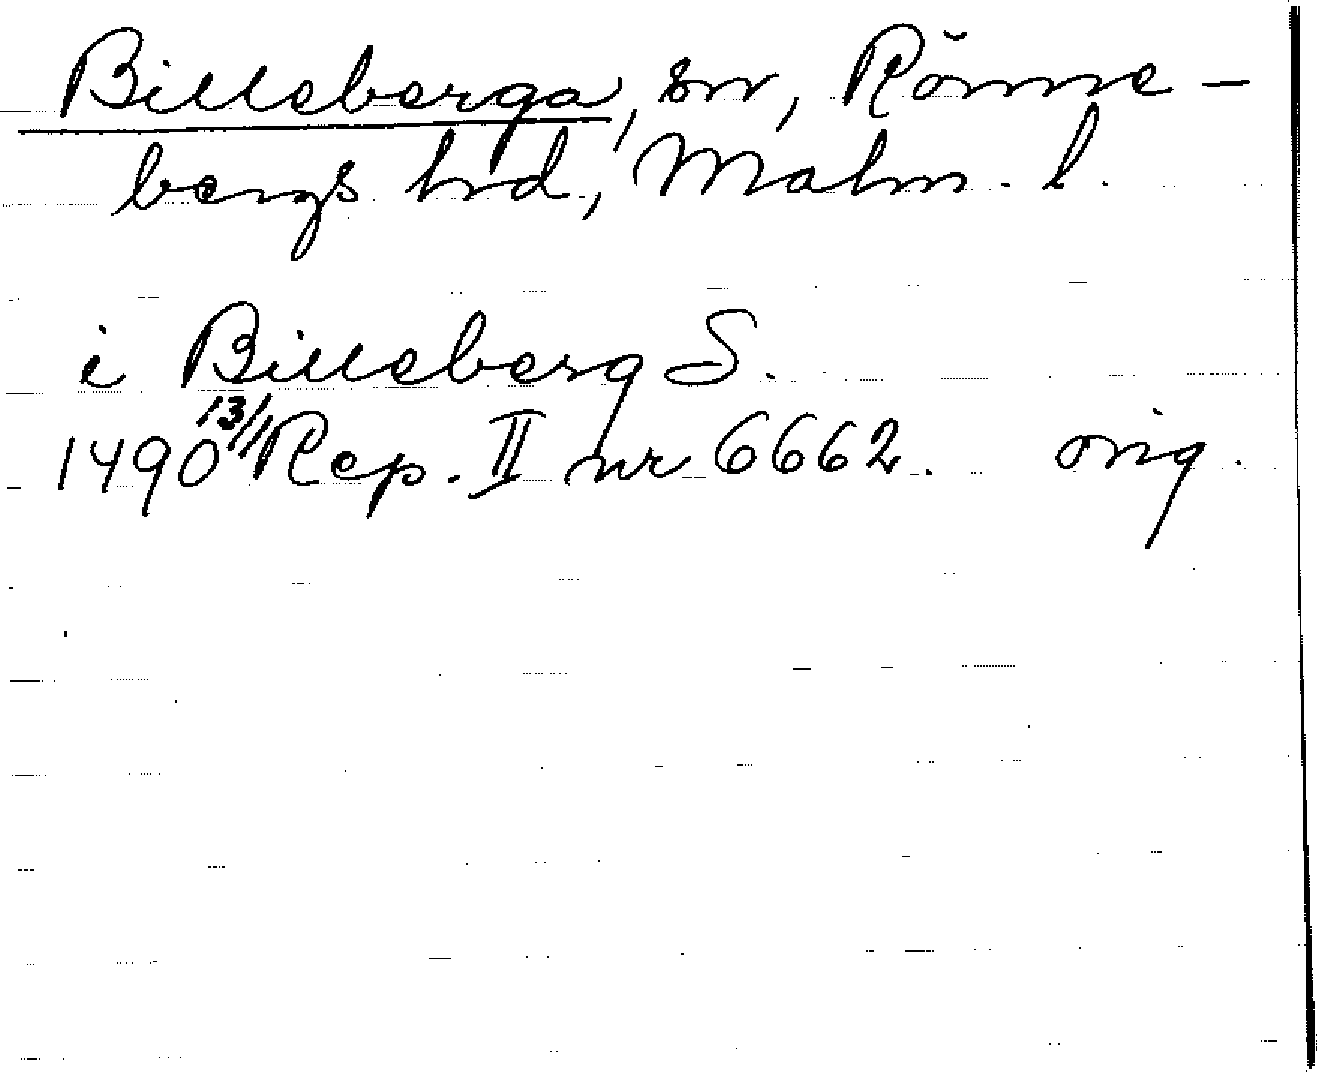 Billeberga, sn, Rönne-
bergs hrd, Malm. l.
i Billeberg S.
1490 13/1 Rep. II nr 6662. orig.